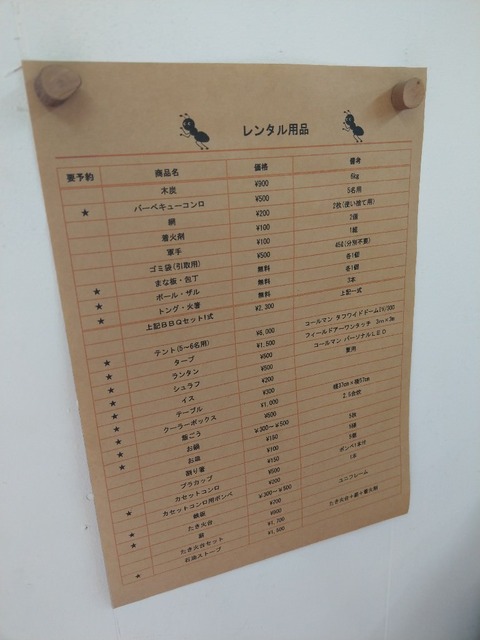 レンタル用品
要予約 商品名 価格 備考
木炭 ¥900 6kg
★ バーベキューコンロ ¥500 5名用
網 ¥200 2枚(使い捨て用)
着火剤 ¥100 2個
軍手 ¥100 1組
ゴミ袋(引取用) ¥500 45ℓ(分別不要)
★ まな板・包丁 無料 各1個
★ ボール・ザル 無料 各1個
★ トング・火箸 無料 各1本
★ 上記BBQセット1式 ¥2,300 上記一式
★ テント(5~6名用) ¥6,000 コールマン タフワイドドームIV/300
★ タープ ¥1,500 フィールドアーワンタッチ 3m×3m
★ ランタン ¥500 コールマン パーソナルLED
★ シュラフ ¥500 夏用
★ イス ¥200
★ テーブル ¥300
★ クーラーボックス ¥1,000
飯ごう ¥500
お鍋 ¥300~¥500
お皿 ¥150
割り箸 ¥100
プラカップ ¥150
★ カセットコンロ ¥500
カセットコンロ用ボンベ ¥200
★ 鉄板 ¥300~¥500
★ たき火台
薪
たき火台セット ¥1,700 たき火台+薪+着火剤
★ 石油ストーブ ¥1,500
ユニフレーム